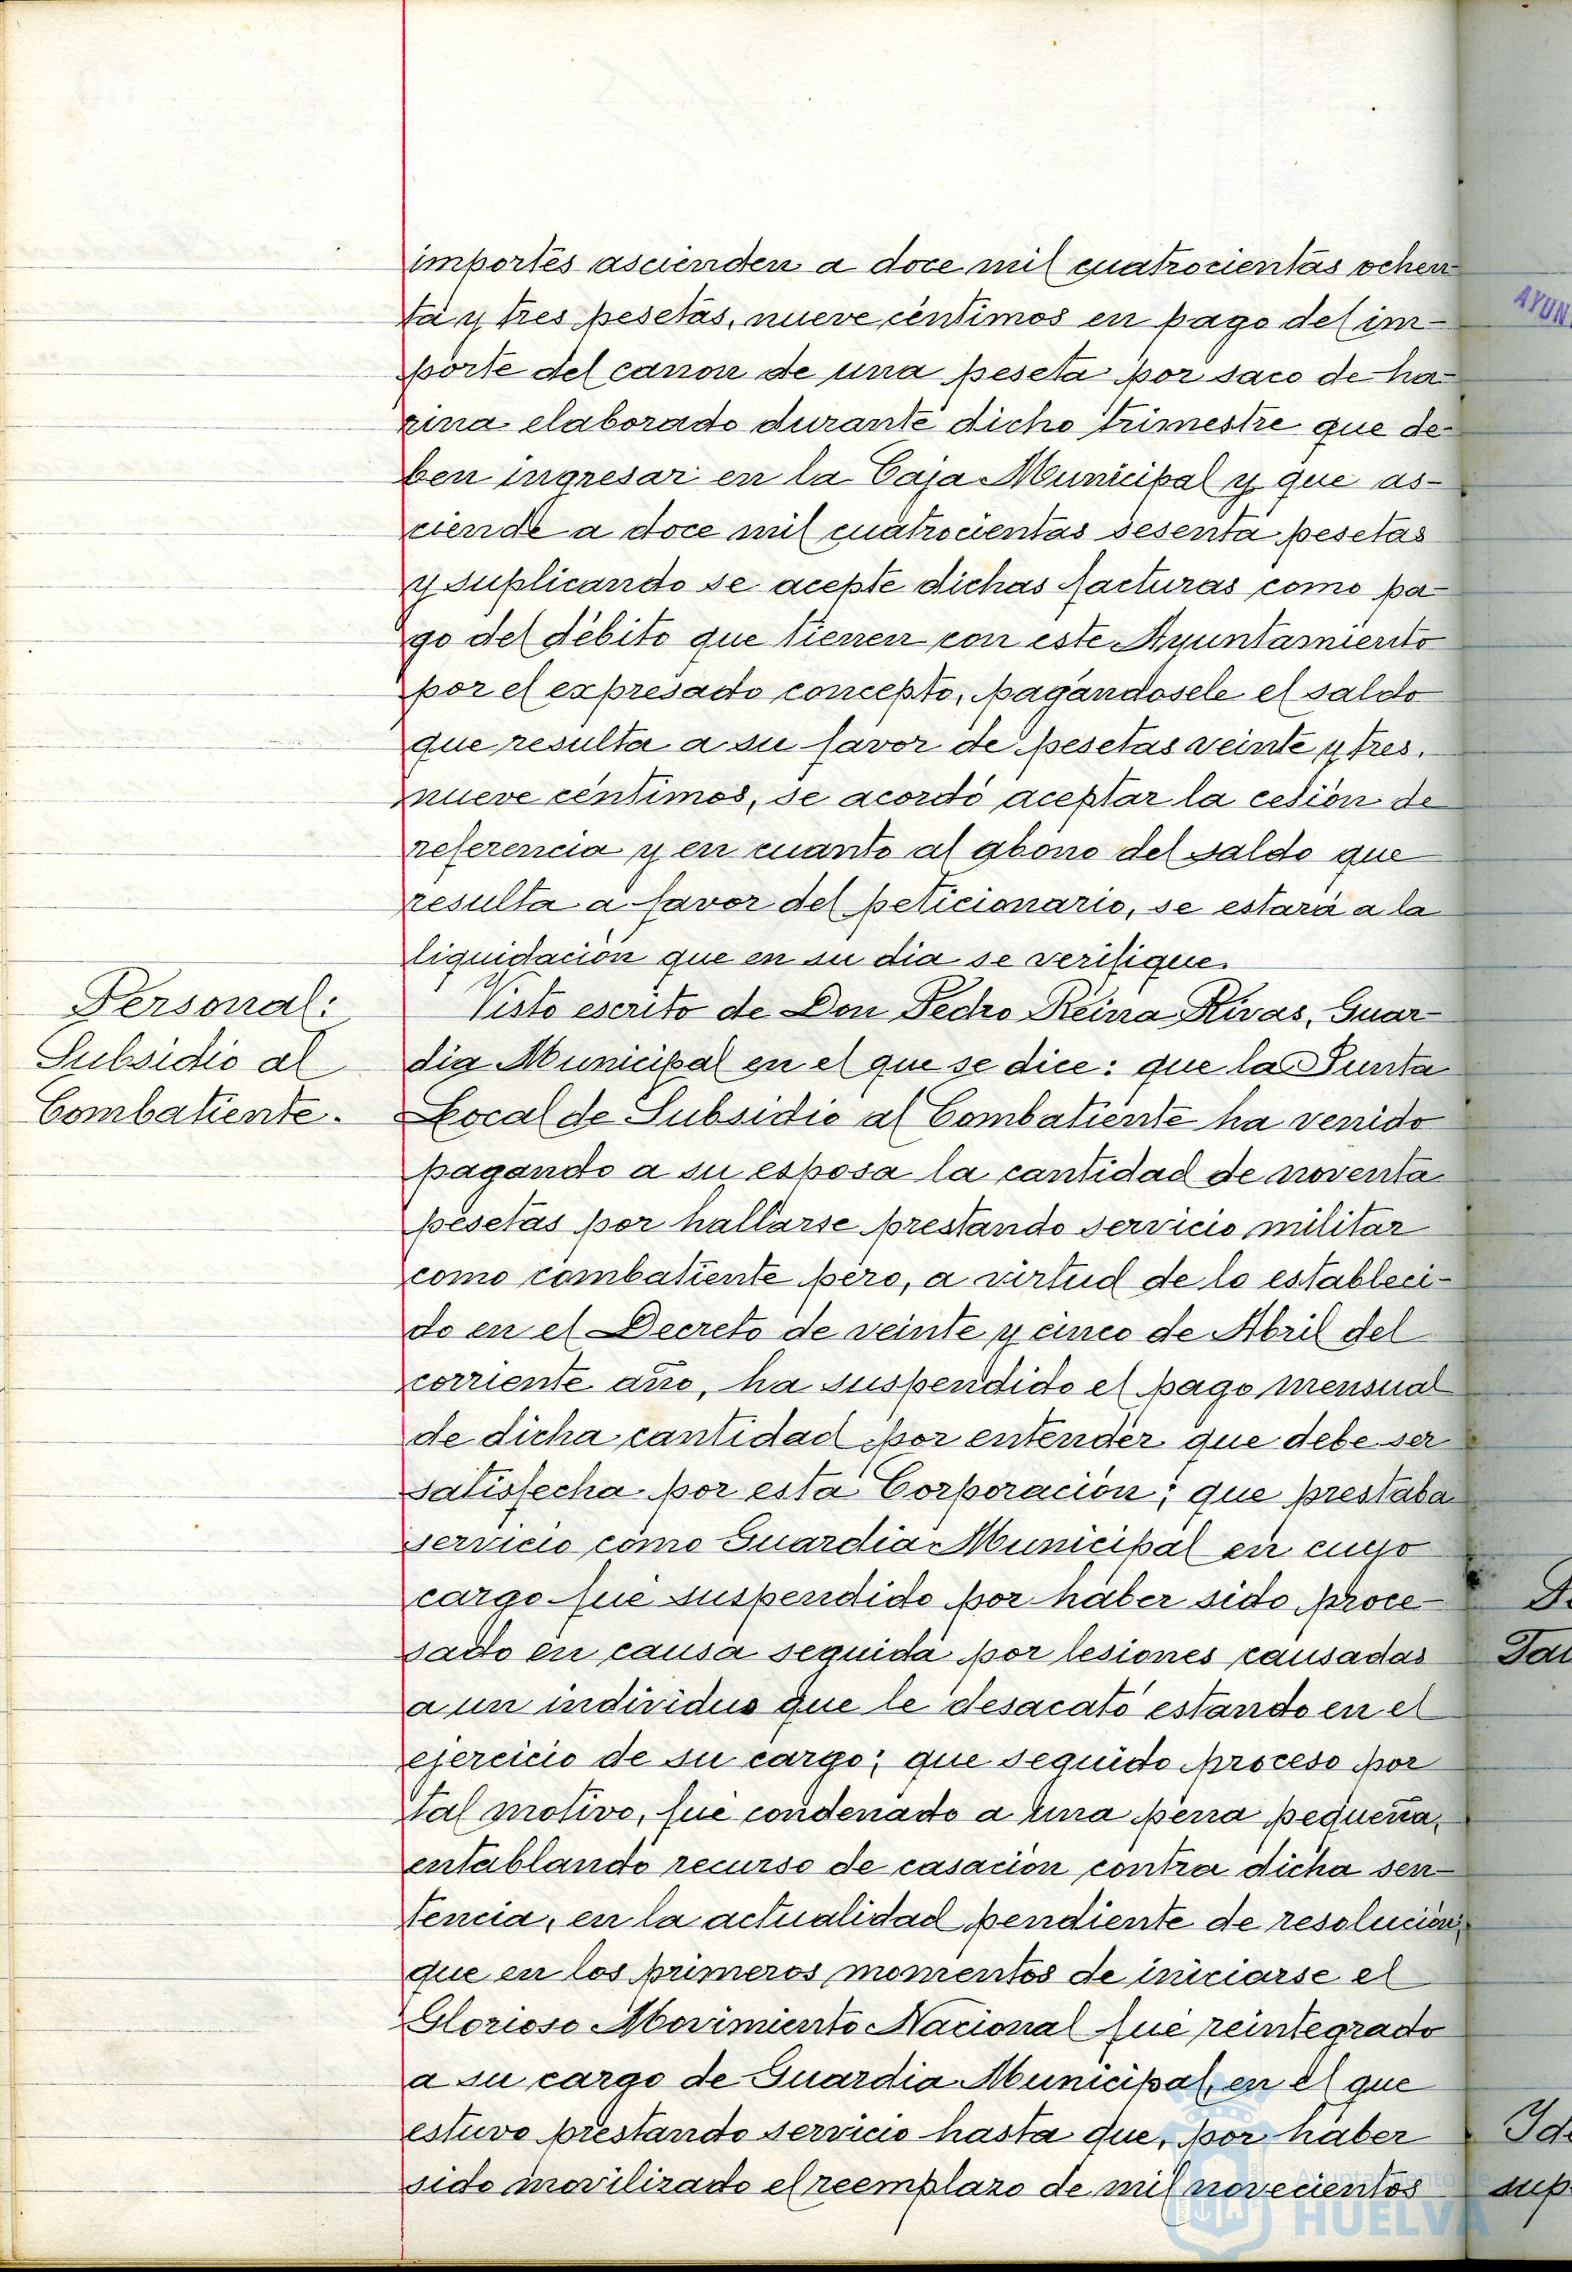 importes ascienden a doce mil cuatrocientas ochen
ta y tres pesetas, nueve céntimos en pago del im-
porte del canon de una peseta por saco de ha-
rina elaborado durante dicho trimestre que de-
ben ingresar en la Caja Municipal y que as-
ciende a doce mil cuatrocientas sesenta pesetas
y suplicando se acepte dichas facturas como pa-
go del débito que tienen con este Ayuntamiento
por el expresado concepto, pagándosele el saldo
que resulta a su favor de pesetas veinte y tres,
nueve céntimos, se acordó aceptar la cesión de
referencia y en cuanto al abono del saldo que
resulta a favor del peticionario, se estará a la
liquidación que en su dia se verifique.
Personal:
Subsidio al
Combatiente.
Visto escrito de Don Pedro Reina Rivas, Guar-
dia Municipal en el que se dice: que la Junta
Local de Subsidio al Combatiente ha venido
pagando a su esposa la cantidad de noventa
pesetas por hallarse prestando servicio militar
como combatiente pero, a virtud de lo estableci-
do en el Decreto de veinte y cinco de Abril del
corriente año, ha suspendido el pago mensual
de dicha cantidad por entender que debe ser
satisfecha por esta Corporación; que prestaba
servicio como Guardia Municipal en cuyo
cargo fué suspendido por haber sido proce-
sado en causa seguida por lesiones causadas
a un individuo que le desacató estando en el
ejercicio de su cargo; que seguido proceso por
tal motivo, fué condenado a una pena pequeña,
entablando recurso de casación contra dicha sen-
tencia, en la actualidad pendiente de resolución;
que en los primeros momentos de iniciarse el
Glorioso Movimiento Nacional fué reintegrado
a su cargo de Guardia Municipal, en el que
estuvo prestando servicio hasta que, por haber
sido movilizado el reemplazo de mil novecientos
AYUN
Ta
Id
sup
Ayuntamiento de
HUELVA